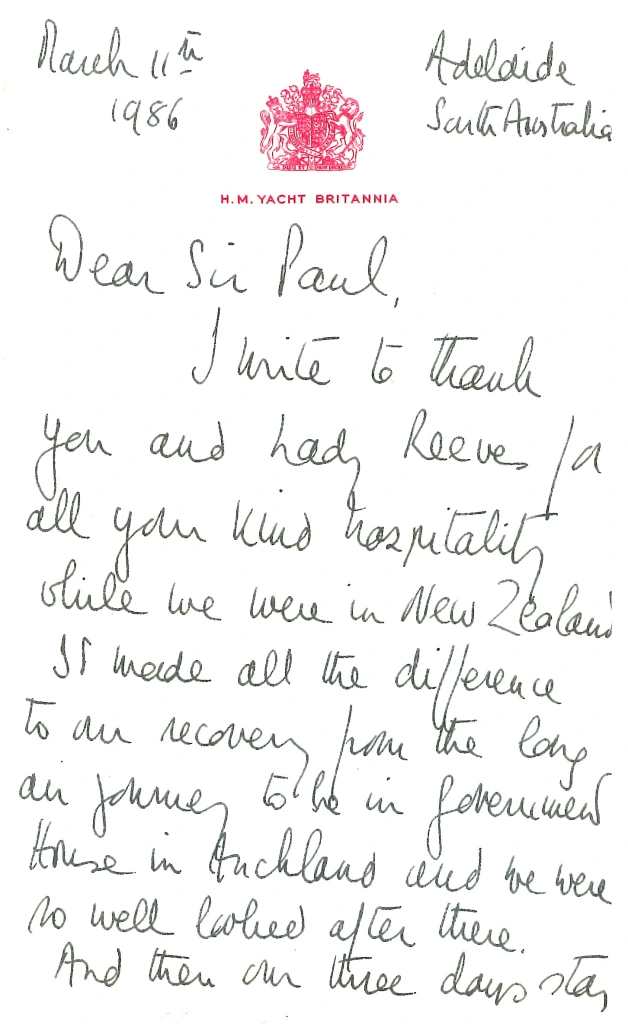 March 11th
1986
Adelaide
South Australia
H.M. YACHT BRITANNIA
Dear Sir Paul,
I write to thank
you and Lady Reeves for
all your kind hospitality
while we were in New Zealand
It made all the difference
to our recovery from the long
air journey to be in Government
House in Auckland and we were
so well looked after there.
And then our three days stay